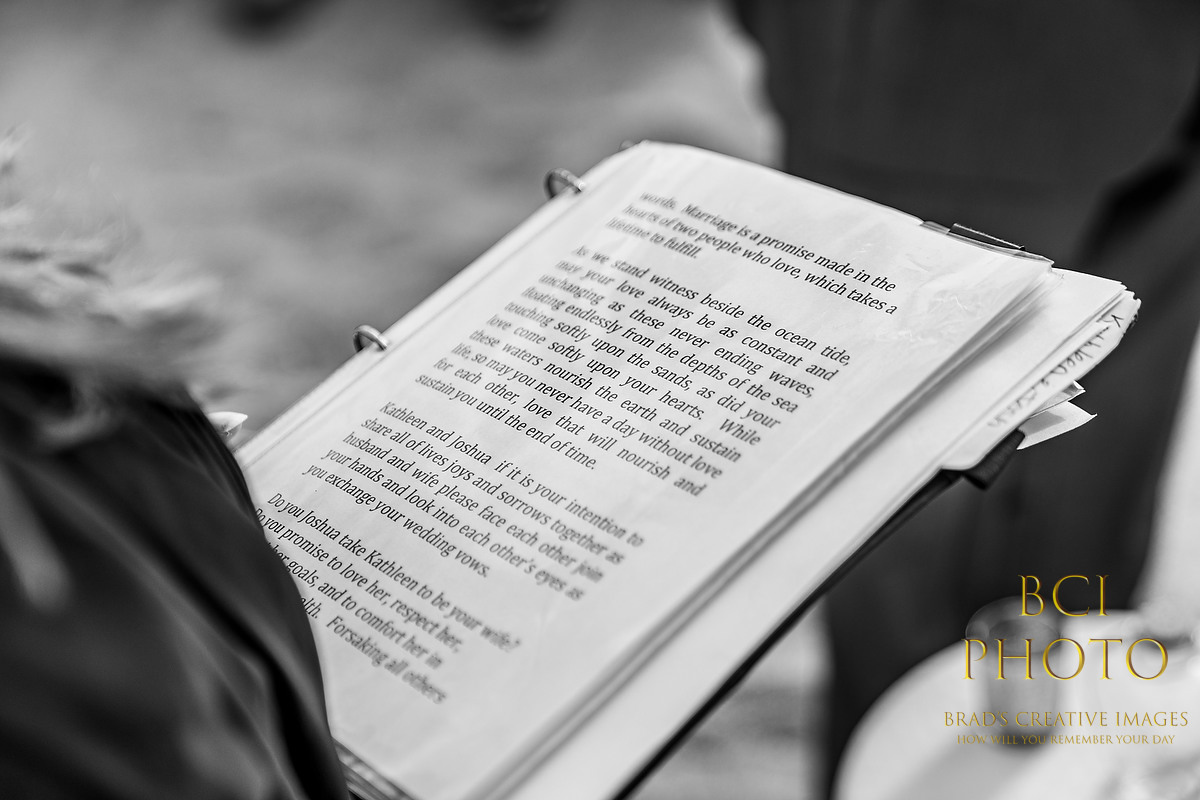 words. Marriage is a promise made in the
hearts of two people who love, which takes a
lifetime to fulfill.
As we stand witness beside the ocean tide,
may your love always be as constant and
unchanging as these never ending waves,
floating endlessly from the depths of the sea
touching softly upon the sands, as did your
love come softly upon your hearts. While
these waters nourish the earth and sustain
life, so may you never have a day without love
for each other, love that will nourish and
sustain you until the end of time.
Kathleen and Joshua if it is your intention to
share all of lives joys and sorrows together as
husband and wife please face each other join
your hands and look into each other's eyes as
you exchange your wedding vows.
Do you Joshua take Kathleen to be your wife?
Do you promise to love her, respect her,
goals, and to comfort her in
Forsaking all others
BCI
PHOTO
BRAD'S CREATIVE IMAGES
HOW WILL YOU REMEMBER YOUR DAY